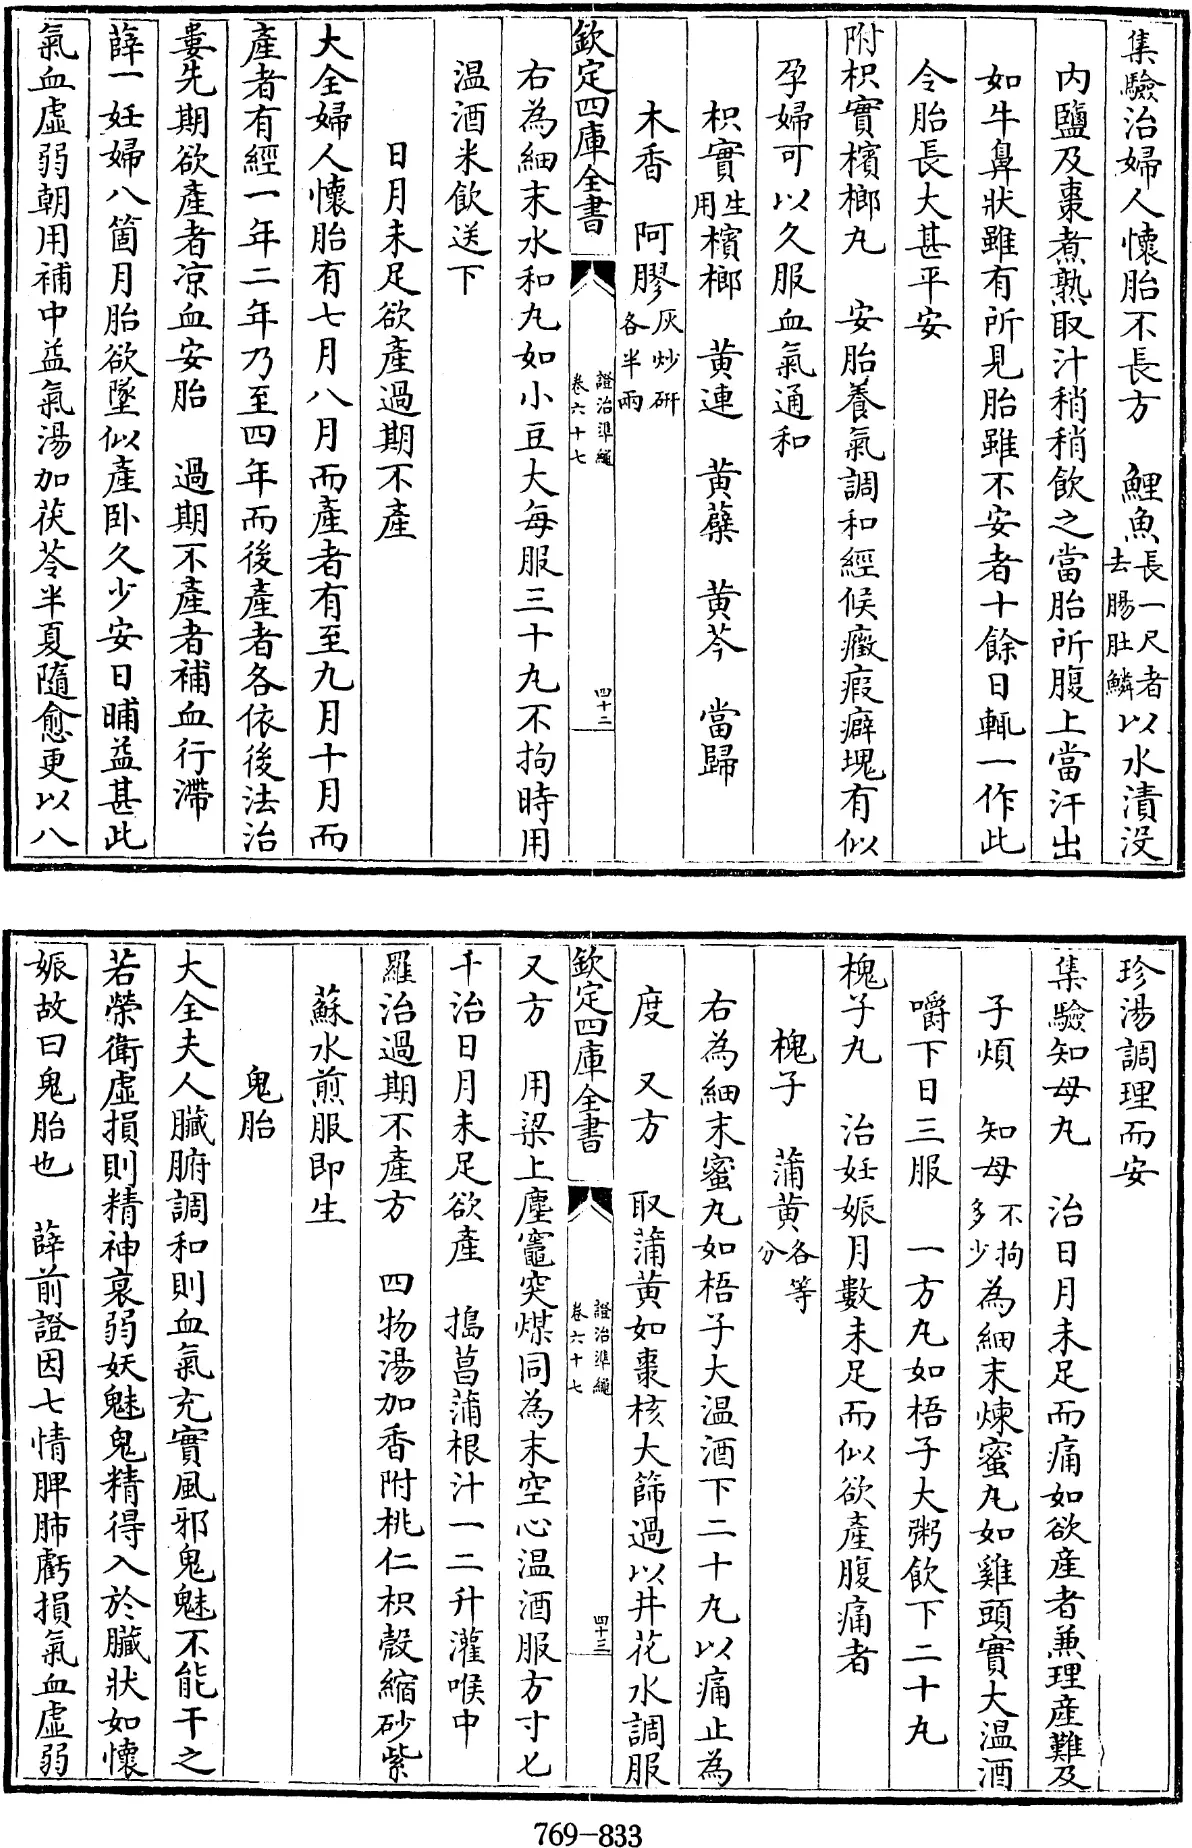 集驗治婦人懷胎不長方　鯉魚長一尺者去腸肚鱗以水漬没
内鹽及棗煮熟取汁稍稍飲之當胎所腹上當汗出
如牛鼻狀雖有所見胎雖不安者十餘日輒一作此
令胎長大甚平安
附枳實檳榔丸　安胎養氣調和經候癥瘕癖塊有似
孕婦可以久服血氣通和
枳實生用檳榔　黄連　黄蘗　黄芩　當歸
木香　阿膠灰炒研各半兩
欽定四庫全書　證治準繩卷六十七　四十二
右為細末水和丸如小豆大每服三十丸不拘時用
温酒米飲送下
日月未足欲產過期不產
大全婦人懷胎有七月八月而產者有至九月十月而
產者有經一年二年乃至四年而後產者各依後法治
婁先期欲產者凉血安胎　過期不產者補血行滯
薛一妊婦八箇月胎欲墜似產卧久少安日晡益甚此
氣血虚弱朝用補中益氣湯加茯苓半夏隨愈更以八
珍湯調理而安
集驗知母丸　治日月未足而痛如欲産者兼理産難及
子煩　知母不拘多少為細末煉蜜丸如雞頭實大温酒
嚼下日三服　一方丸如梧子大粥飲下二十丸
槐子丸　治妊娠月數未足而似欲產腹痛者
槐子　蒲黄各等分
右為細末蜜丸如梧子大温酒下二十丸以痛止為
度　又方　取蒲黄如棗核大篩過以井花水調服
欽定四庫全書　證治準繩卷六十七　四十三
又方　用梁上塵竈突煤同為末空心温酒服方寸匕
千治日月未足欲產　搗菖蒲根汁一二升灌喉中
羅治過期不產方　四物湯加香附桃仁枳殻縮砂紫
蘇水煎服即生
鬼胎
大全夫人臟腑調和則血氣充實風邪鬼魅不能干之
若榮衛虚損則精神衰弱妖魅鬼精得入於臟狀如懷
娠故曰鬼胎也　薛前證因七情脾肺虧損氣血虚弱
769-833